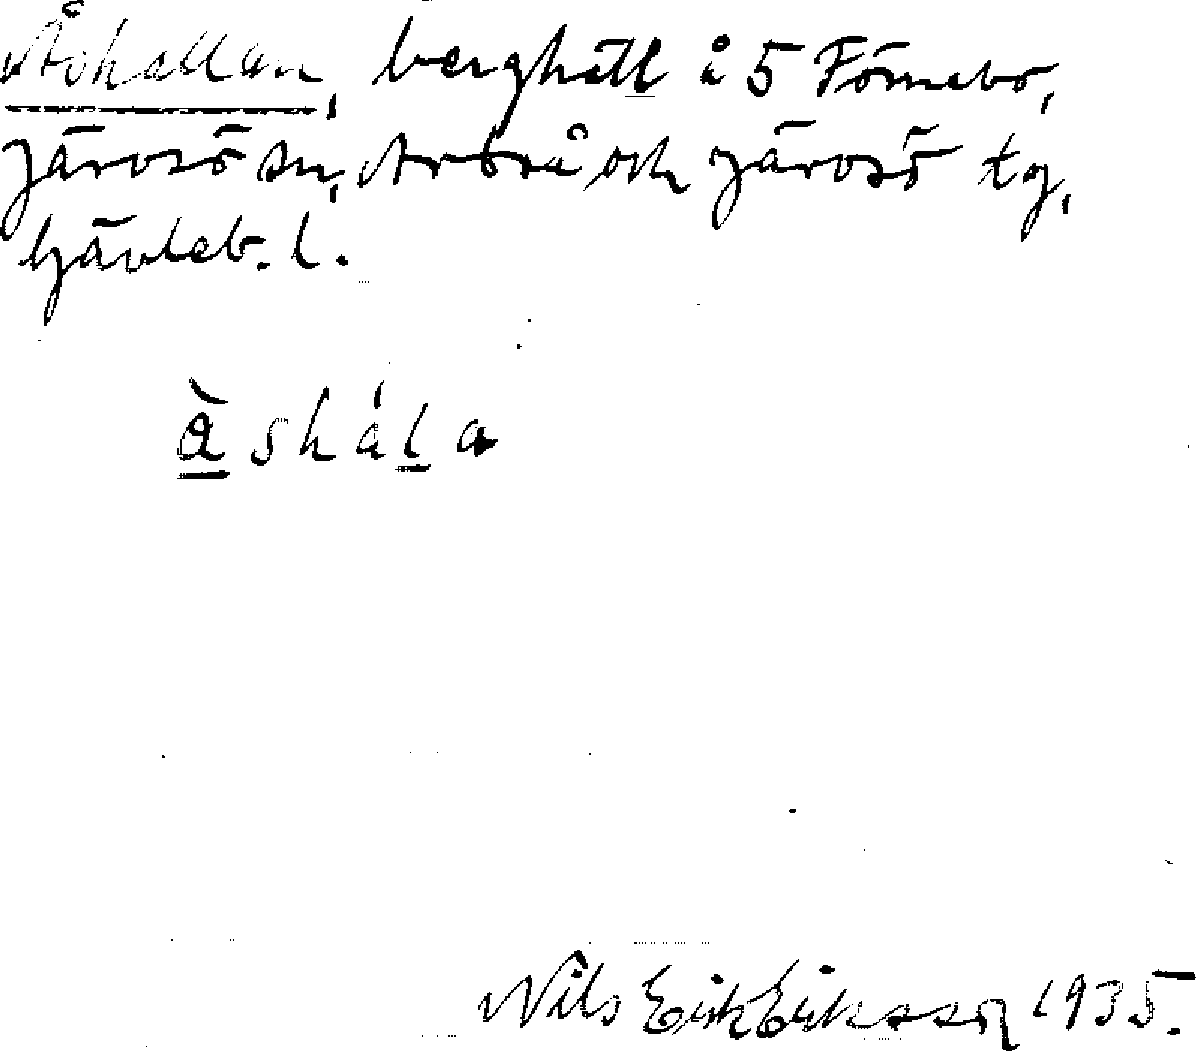 Åshallan, berghäll å 5 Förnebo,
Järvsö sn, Arbrå och Järvsö tg,
Gävleb. l.
å̀shála
Nils Erik Eriksson 1935.